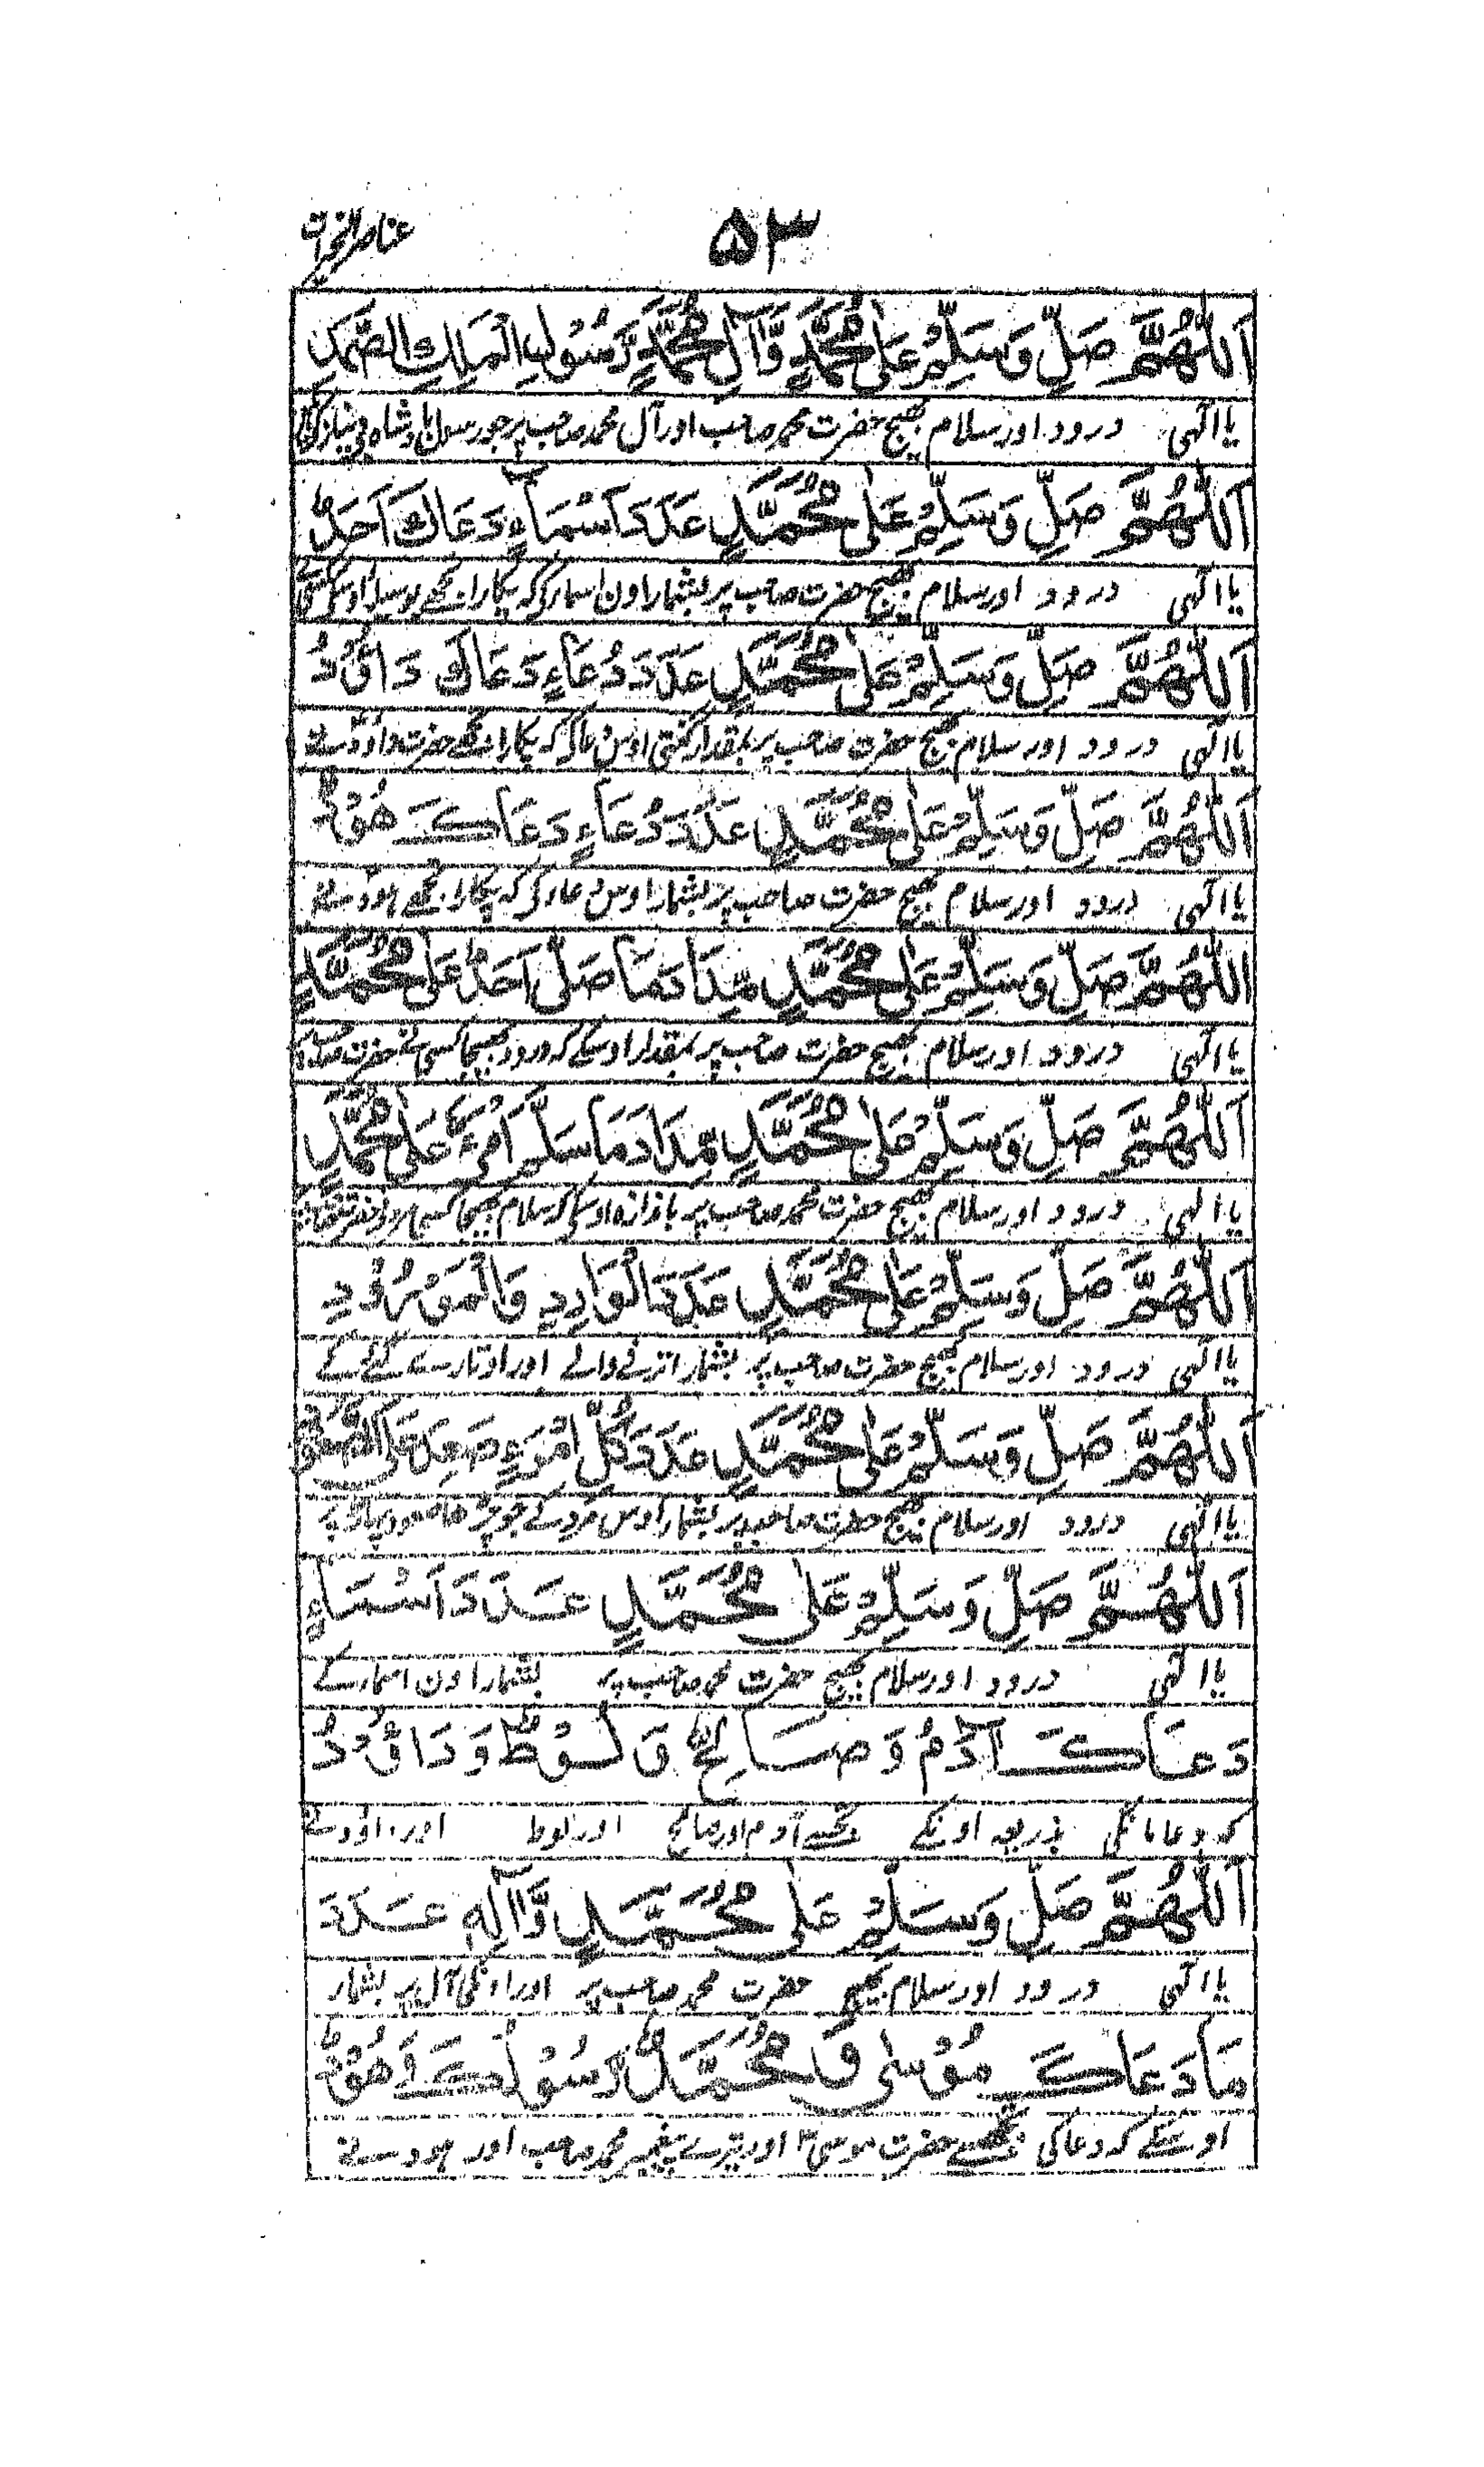 ۵۳ عناصر الخیرات
اَللّٰهُمَّ صَلِّ وَسَلِّمْ عَلٰى مُحَمَّدٍ وَّاٰلِ مُحَمَّدٍ رَّسُوْلِ الْمَلِكِ الصَّمَدِ
یا الٰہی درود اور سلام بھیج حضرت محمد صاحب اور آل محمد صاحب پر جو رسول بادشاہ بے نیاز کے
اَللّٰهُمَّ صَلِّ وَسَلِّمْ عَلٰى مُحَمَّدٍ عَدَدَ اَسْمَآءٍ دَعَاكَ اَحَدٌ
یا الٰہی درود اور سلام بھیج حضرت صاحب پر بشمار اون اسمار کے کہ پکارا تجھے بوسیلہ اونکے کسی نے
اَللّٰهُمَّ صَلِّ وَسَلِّمْ عَلٰى مُحَمَّدٍ عَدَدَ دُعَاءٍ دَعَاكَ دَاوٗدُ
یا الٰہی درود اور سلام بھیج حضرت صاحب پر بمقدار گنتی اوس دعا کے کہ پکارا تجھے حضرت داؤد نے
اَللّٰهُمَّ صَلِّ وَسَلِّمْ عَلٰى مُحَمَّدٍ عَدَدَ دُعَاءٍ دَعَاكَ هُوْدٌ
یا الٰہی درود اور سلام بھیج حضرت صاحب پر بشمار اوس دعار کے کہ پکارا تجھے ہود نے
اللّٰهُمَّ صَلِّ وَسَلِّمْ عَلٰى مُحَمَّدٍ مِّدَادَ مَا صَلّٰى اَحَدٌ عَلٰى مُحَمَّدٍ
یا الٰہی درود اور سلام بھیج حضرت صاحب پر بمقدار اوسکے کہ درود بھیجا کسی نے حضرت
اَللّٰهُمَّ صَلِّ وَسَلِّمْ عَلٰى مُحَمَّدٍ مِّدَادَ مَا سَلَّمَ امْرُءٌ عَلٰى مُحَمَّدٍ
یا الٰہی درود اور سلام بھیج حضرت محمد صاحب پر باندازہ اوسکے کہ سلام بھیجا کسی مرد نے
اَللّٰهُمَّ صَلِّ وَسَلِّمْ عَلٰى مُحَمَّدٍ عَدَدَ الْوَارِدِ وَالْمَوْرُوْدِ
یا الٰہی درود اور سلام بھیج حضرت صاحب پر بشمار اترنے والے اور اوتارے گئے کے
اَللّٰهُمَّ صَلِّ وَسَلِّمْ عَلٰى مُحَمَّدٍ عَدَدَ كُلِّ امْرِءٍ صَعِدَ عَلَى الصَّعُوْدِ
یا الٰہی درود اور سلام بھیج حضرت صاحب پر بشمار اوس مرد کے جو چڑھا صعود پہاڑ پر
اَللّٰهُمَّ صَلِّ وَسَلِّمْ عَلٰى مُحَمَّدٍ عَدَدَ اَسْمَاءٍ
یا الٰہی درود اور سلام بھیج حضرت محمد صاحب پر بشمار اون اسمار کے
دَعَاكَ اٰدَمُ وَ صَالِحٌ وَ لُوْطٌ وَ دَاوٗدُ
کہ دعا مانگی بذریعہ اونکے تجھسے آدم اور صالح اور لوط اور داؤد نے
اَللّٰهُمَّ صَلِّ وَسَلِّمْ عَلٰى مُحَمَّدٍ وَّاٰلِهٖ عَدَدَ
یا الٰہی درود اور سلام بھیج حضرت محمد صاحب پر اور اونکی آل پر بشمار
مَا دَعَاكَ مُوْسٰى وَ مُحَمَّدٌ رَّسُوْلُكَ وَ هُوْدٌ
اوسکے کہ دعا کی تجھسے حضرت موسی ؑ اور تیرے پیغمبر محمد صاحب اور ہود نے